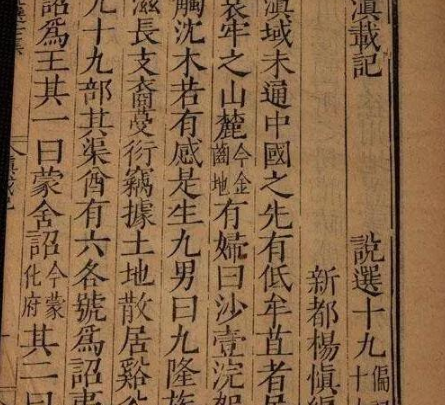 滇載記
說選十九偏
新都楊愼編
滇域未通中國之先有低牟苴者居
哀牢之山麓今金齒地有婦曰沙壹浣
觸沈木若有感是生九男曰九隆族
滋長支裔蔓衍竊據土地散居谿
九十九部其渠酋有六各號爲詔夷
詔爲王其一曰蒙舍詔今蒙化府其二曰